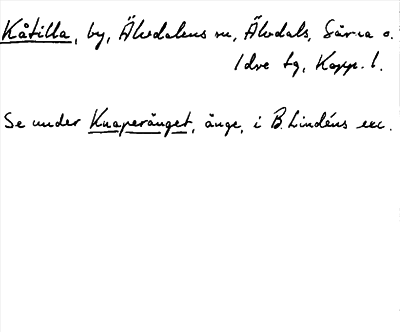 Kåtilla, by, Älvdalens sn, Älvdals, Särna o.
Idre tg, Kopp. l.
Se under Knaperänget, änge, i B. Lindéns exc.